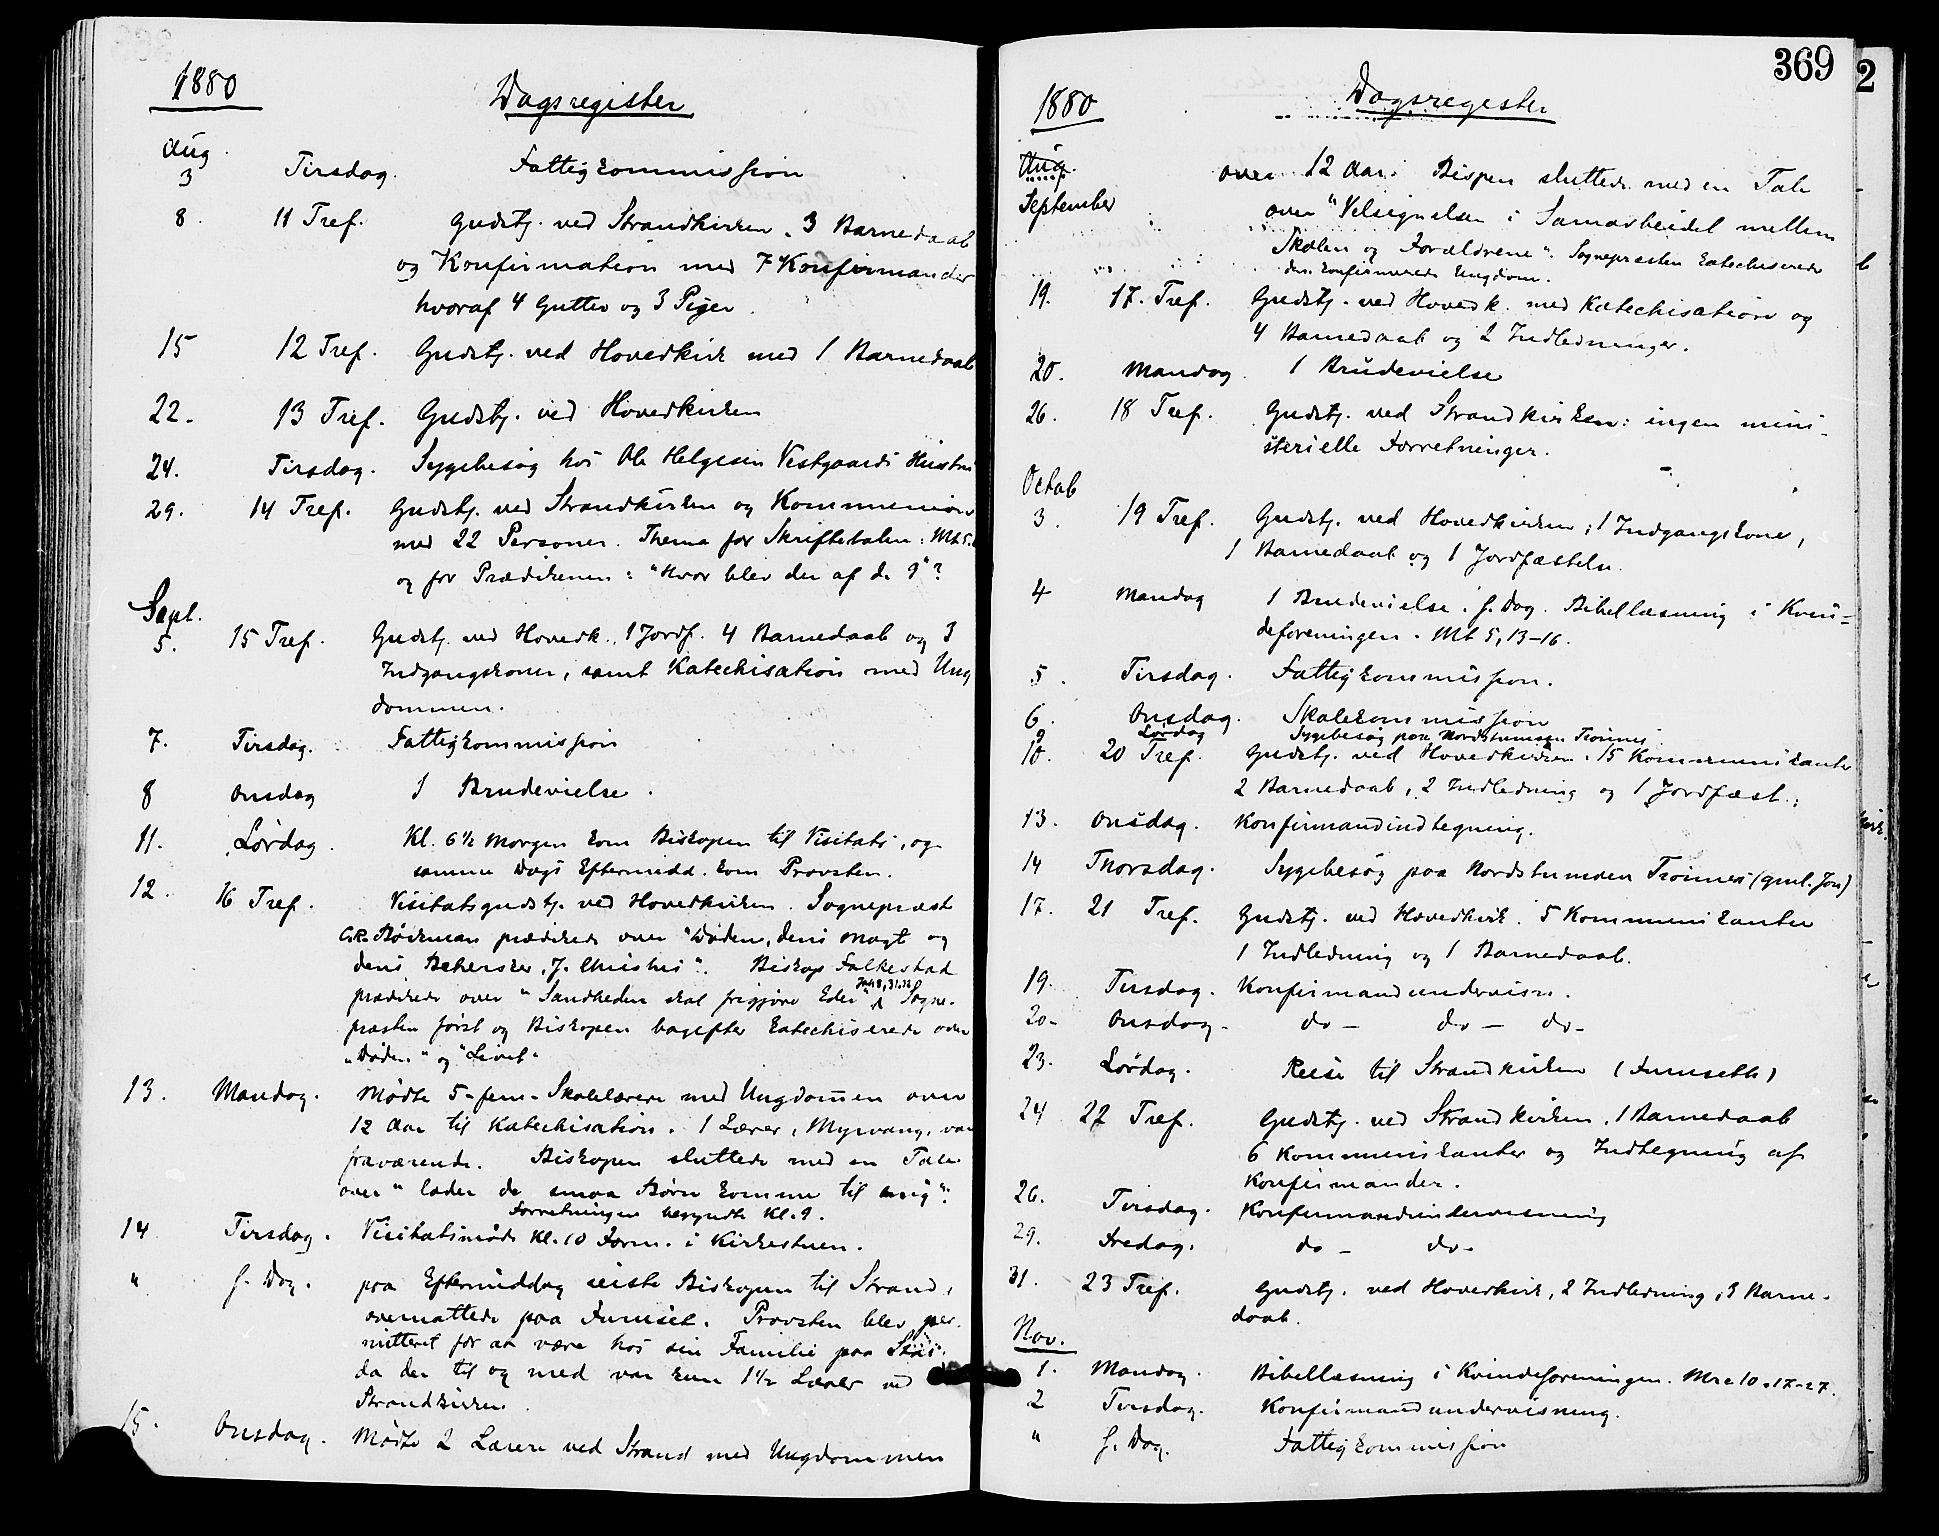 1880
Dagsregister
Aug.
3 Tirsdag. Fattigkommission
8. 11 Tref. Gudstj. ved Strandkirken. 3 Barnedaab
og Konfirmation med 7 Konfirmander
hvoraf 4 Gutter og 3 Piger.
15 12 Tref. Gudstj. ved Hovedkirk med 1 Barnedaab
22. 13 Tref. Gudstj. ved Hovedkirken
24. Tirsdag. Sygebesøg hos Ole Helgesen Vestgaards Hustru
29. 14 Tref. Gudstj. ved Strandkirken og Kommunion
med 22 Personer. Thema for Skriftetalen: Mt 5.
og for Prædikenen: "Hvor blev der af de 9"?
Sept.
5. 15 Tref. Gudstj. ved Hovedk. 1 Jordf. 4 Barnedaab og 3
Indgangskoner, samt Katechisation med Ung
dommen.
7. Tirsdag. Fattigkommission
8 Onsdag 1 Brudevielse.
11. Lørdag. Kl. 6½ Morgen kom Biskopen til Visitats, og
samme Dags Eftermidd. kom Provsten.
12. 16 Tref. Visitatsgudstj. ved Hovedkirken. Sognepræst
prædikede over "Døden, dens Magt og
dens Behersker, J. Christus". Biskop Folkestad
prædikede over "Sandheden skal frigjøre Eder" Joh 8,31.32 Sogne-
præsten først og Biskopen bagefter katechiserede over
"Døden" og "Livet"
13. Mandag. Mødte 5-fem-Skolelærere med Ungdommen over
12 Aar til Katechisation. 1 Lærer, Myrvang, var
fraværende. Biskopen sluttede med en Tale
over "lader de smaa Børn komme til mig".
Forretningen begyndte Kl. 9.
14 Tirsdag. Visitatsmøde Kl. 10 Form. i Kirkestuen.
" s. Dag. paa Eftermiddag reiste Biskopen til Strand,
overnattede paa Furuset. Provsten blev per-
mitteret for at være hos sin Familie paa
da der til og med var kun 1½ Lærer ved
Strandkirken.
15. Onsdag. Mødte 2 Lærere ved Strand med Ungdommen
369
2
1880
Dagsregister
Aug.
September
over 12 Aar. Bispen sluttede med en Tale
over "Velsignelsen i Samarbeidet mellem
Skolen og Forældrene". Sognepræsten katechiserede
den konfirmerede Ungdom.
19. 17. Tref. Gudstj. ved Hovedk. med Katechisation og
4 Barnedaab og 2 Indledninger.
20. Mandag. 1 Brudevielse
26. 18 Tref. Gudstj. ved Strandkirken: ingen mini-
sterielle Forretninger.
Octob
3. 19 Tref. Gudstj. ved Hovedkirken; 1 Indgangskone,
1 Barnedaab og 1 Jordfæstelse
4 Mandag 1 Brudevielse. s. Dag. Bibellæsning i Kvin-
deforeningen. Mt 5, 13-16.
5. Tirsdag. Fattigkommission.
6. Onsdag. Skolekommission
9 Lørdag Sygebesøg paa Nordstumoen Trønnes
10. 20 Tref. Gudstj. ved Hovedkirken. 15 Kommunikanter
2 Barnedaab, 2 Indledning og 1 Jordfæst.;
13. Onsdag. Konfirmandindtegning.
14 Thorsdag. Sygebesøg paa Nordstumoen Trønnes (gml. Jon)
17. 21 Tref. Gudstj. ved Hovedkirk. 5 Kommunikanter
1 Indledning og 1 Barnedaab.
19. Tirsdag. Konfirmandundervisn.
20- Onsdag. do - do - do-
23. Lørdag. Reise til Strandkirken (Furuseth)
24 22 Tref. Gudstj. ved Strandkirken, 1 Barnedaab
6 Kommunikanter og Indtegning af
Konfirmander.
26. Tirsdag. Konfirmandundervisning
29. Fredag. do - do-
31. 23 Tref. Gudstj. ved Hovedkirk, 2 Indledning, 3 Barne-
daab.
Nov.
1. Mandag. Bibellæsning i Kvindeforeningen. Mrc 10.17-27.
2 Tirsdag. Konfirmandundervisning.
" s. Dag. Fattigkommission